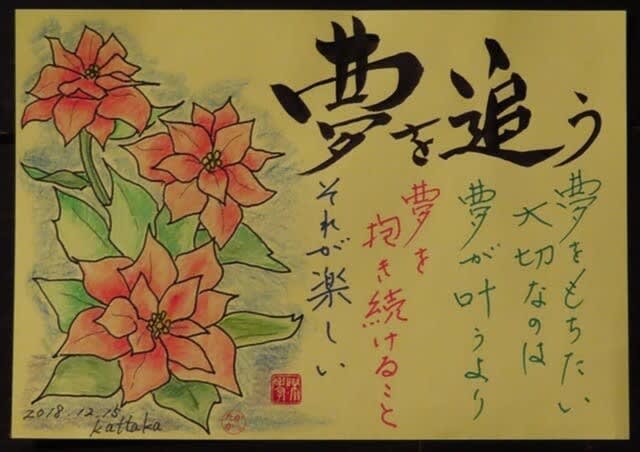 夢を追う
夢をもちたい
大切なのは
夢が叶うより
夢を
抱き続けること
それが楽しい
2018.12.15
kattaka